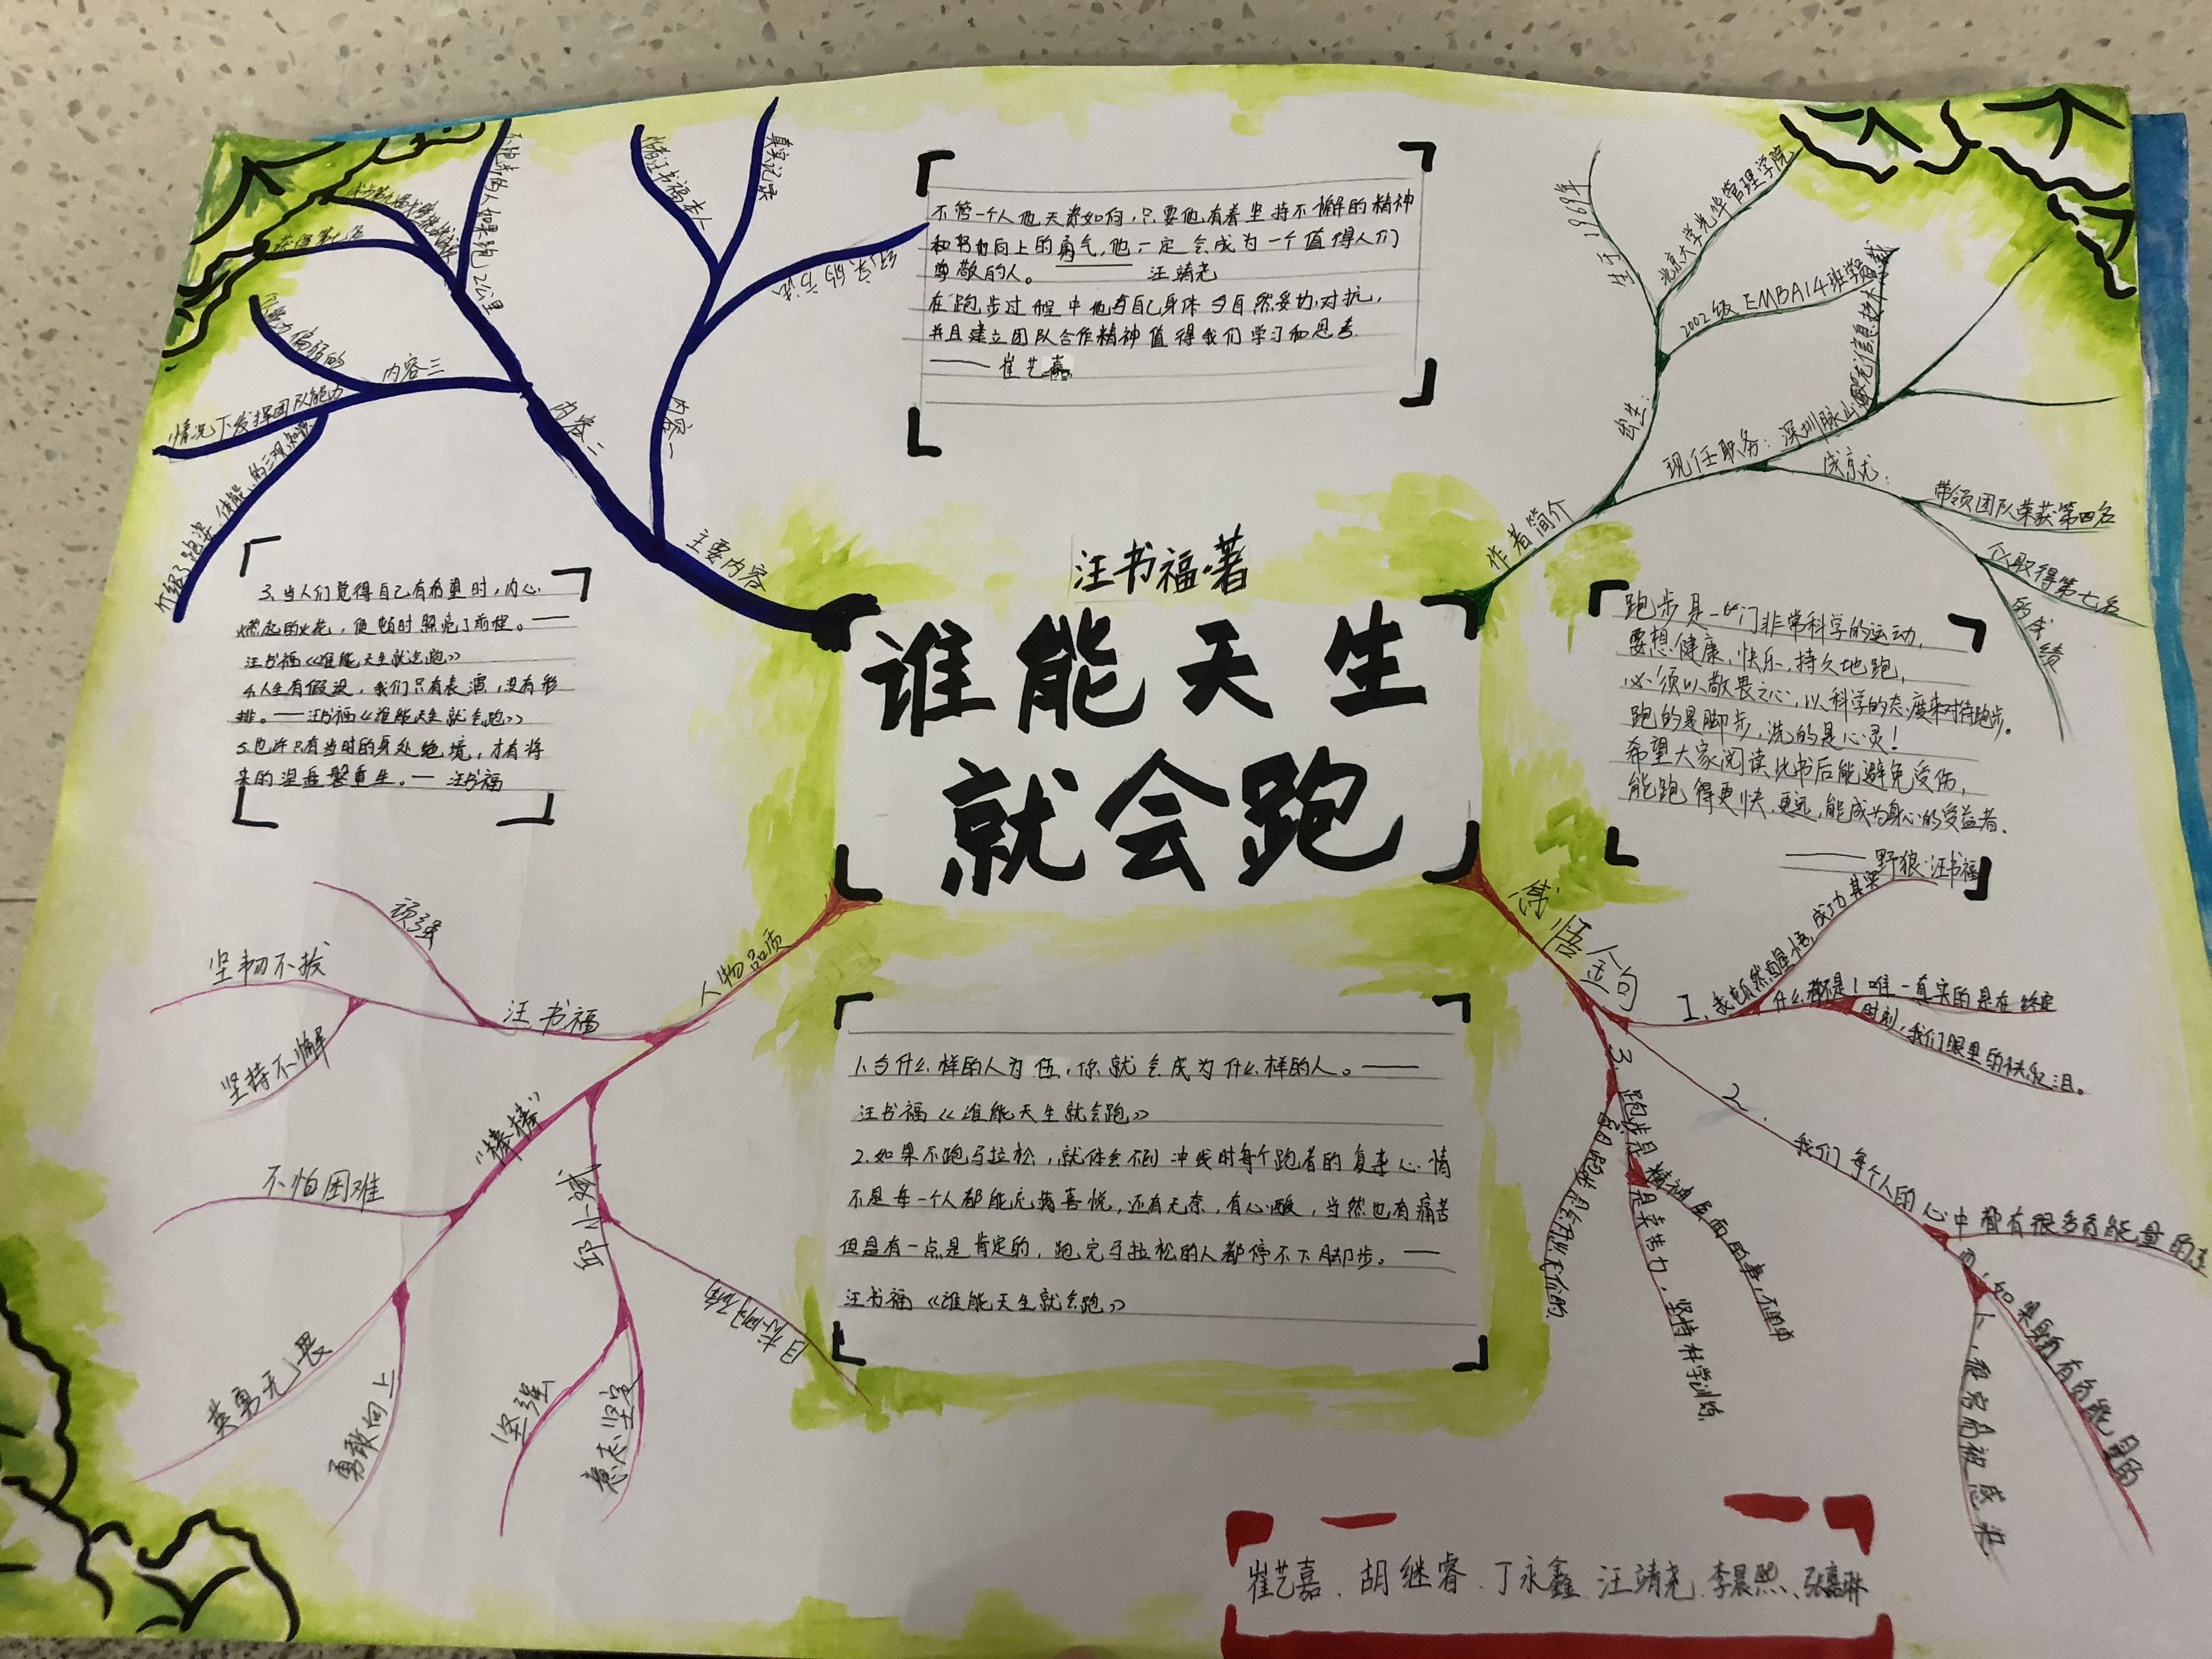 汪书福·著
谁能天生
就会跑
主要内容
内容一
真实记录
内容二
不跑步的人如果跑2公里
获得第七名
内容三
偏弱的
情况下发挥团队能力
不管一个人他天资如何，只要他有着坚持不懈的精神
和努力向上的勇气，他一定会成为一个值得人们
尊敬的人。——汪靖尧
在跑步过程中他与自己身体与自然妥协，对抗，
并且建立团队合作精神值得我们学习和思考
——崔艺嘉
作者简介
出生：
生于1969年
北京大学光华管理学院
2002级EMBA14班学员
现任职务：深圳脉山龙信息技术
成就：
带领团队荣获第四名
以取得第七名
的成绩
3.当人们觉得自己有希望时，内心
燃起的火花，便顿时照亮了前程。——
汪书福《谁能天生就会跑》
4.人生有假设，我们只有表演，没有彩
排。——汪书福《谁能天生就会跑》
5.也许只有当时的身处绝境，才有将
来的涅盘磐重生。—汪书福
跑步是一门非常科学的运动，
要想健康、快乐、持久地跑，
必须以敬畏之心，以科学的态度来对待跑步。
跑的是脚步，洗的是心灵！
希望大家阅读此书后能避免受伤，
能跑得更快、更远，能成为身心的受益者。
——野狼·汪书福
人物品质
汪书福
顽强
坚韧不拔
坚持不懈
“棒棒”
不怕困难
英勇无畏
勇敢向上
邱小斌
坚强
意志坚定
目标明确
1.与什么样的人为伍，你就会成为什么样的人。——
汪书福《谁能天生就会跑》
2.如果不跑马拉松，就体会不到冲线时每个跑者的复杂心情
不是每一个人都能充满喜悦，还有无奈，有心酸，当然也有痛苦
但是有一点是肯定的，跑完马拉松的人都停不下脚步。——
汪书福《谁能天生就会跑》
感悟金句
1.我顿然醒悟，成功其实
什么都不是！唯一真实的是在终定
时刻，我们眼里的热泪。
2.
我们每个人的心中都有很多负能量的东
西，如果身边有负能量的
人，很容易被感染
3.跑步是精神层面的事，不单单
是卖苦力，坚持科学训练
崔艺嘉、胡继睿、丁永鑫、汪靖尧、李晨熙、张嘉琳